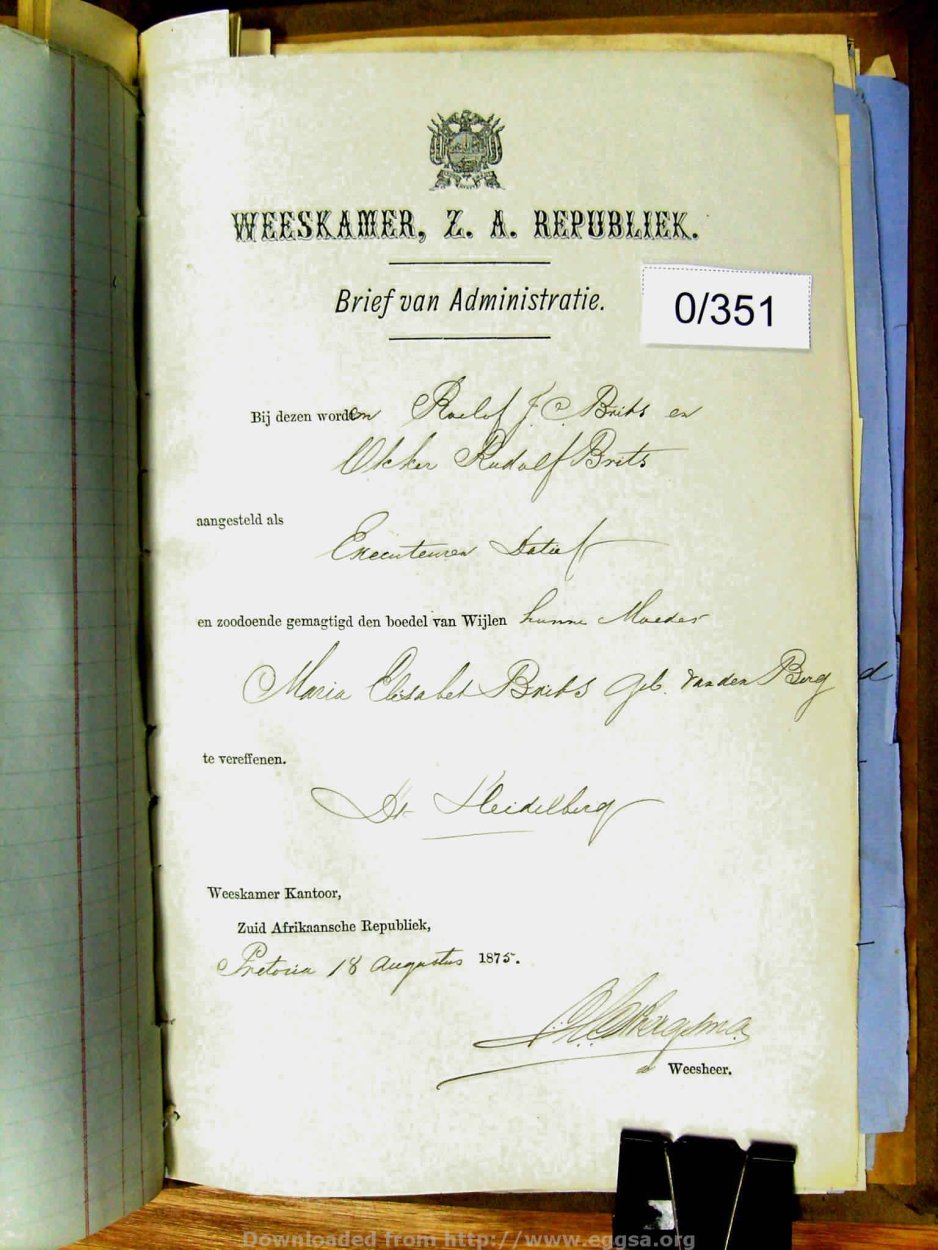 WEESKAMER, Z. A. REPUBLIEK.
Brief van Administratie.
0/351
Bij dezen worden Roelof J. C. Brits en
Okker Rudolf Brits
aangesteld als
Executeuren Datief
en zoodoende gemagtigd den boedel van Wijlen hunne Moeder
Maria Elisabet Brits geb. van den Berg
te vereffenen.
Dt. Heidelberg
Weeskamer Kantoor,
Zuid Afrikaansche Republiek,
Pretoria 18 Augustus 1875.
Weesheer.
Downloaded from http://www.eggsa.org